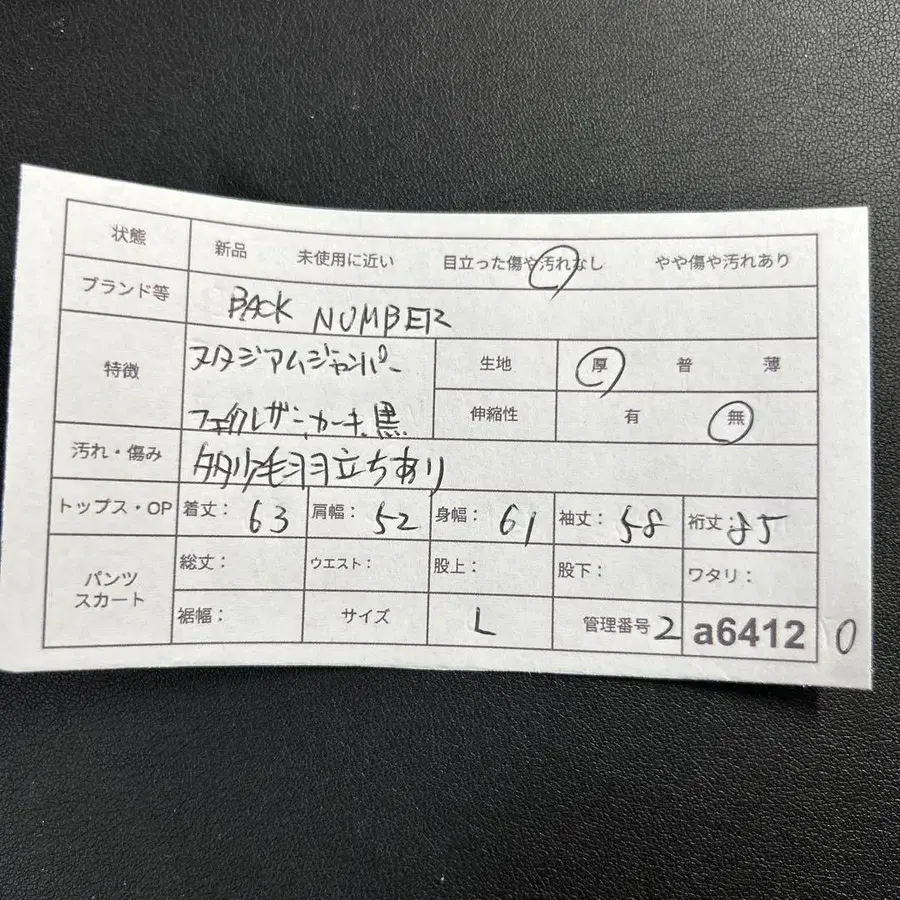 状態 新品 未使用に近い 目立った傷や汚れなし やや傷や汚れあり
ブランド等 BACK NUMBER
特徴 スタジアムジャンパー 生地 厚 普 薄
フェイクレザー、カーキ、黒 伸縮性 有 無
汚れ・傷み 多少毛羽立ちあり
トップス・OP 着丈: 63 肩幅: 52 身幅: 61 袖丈: 58 裄丈: 85
パンツ スカート 総丈: ウエスト: 股上: 股下: ワタリ:
裾幅: サイズ L 管理番号 2 a6412 0